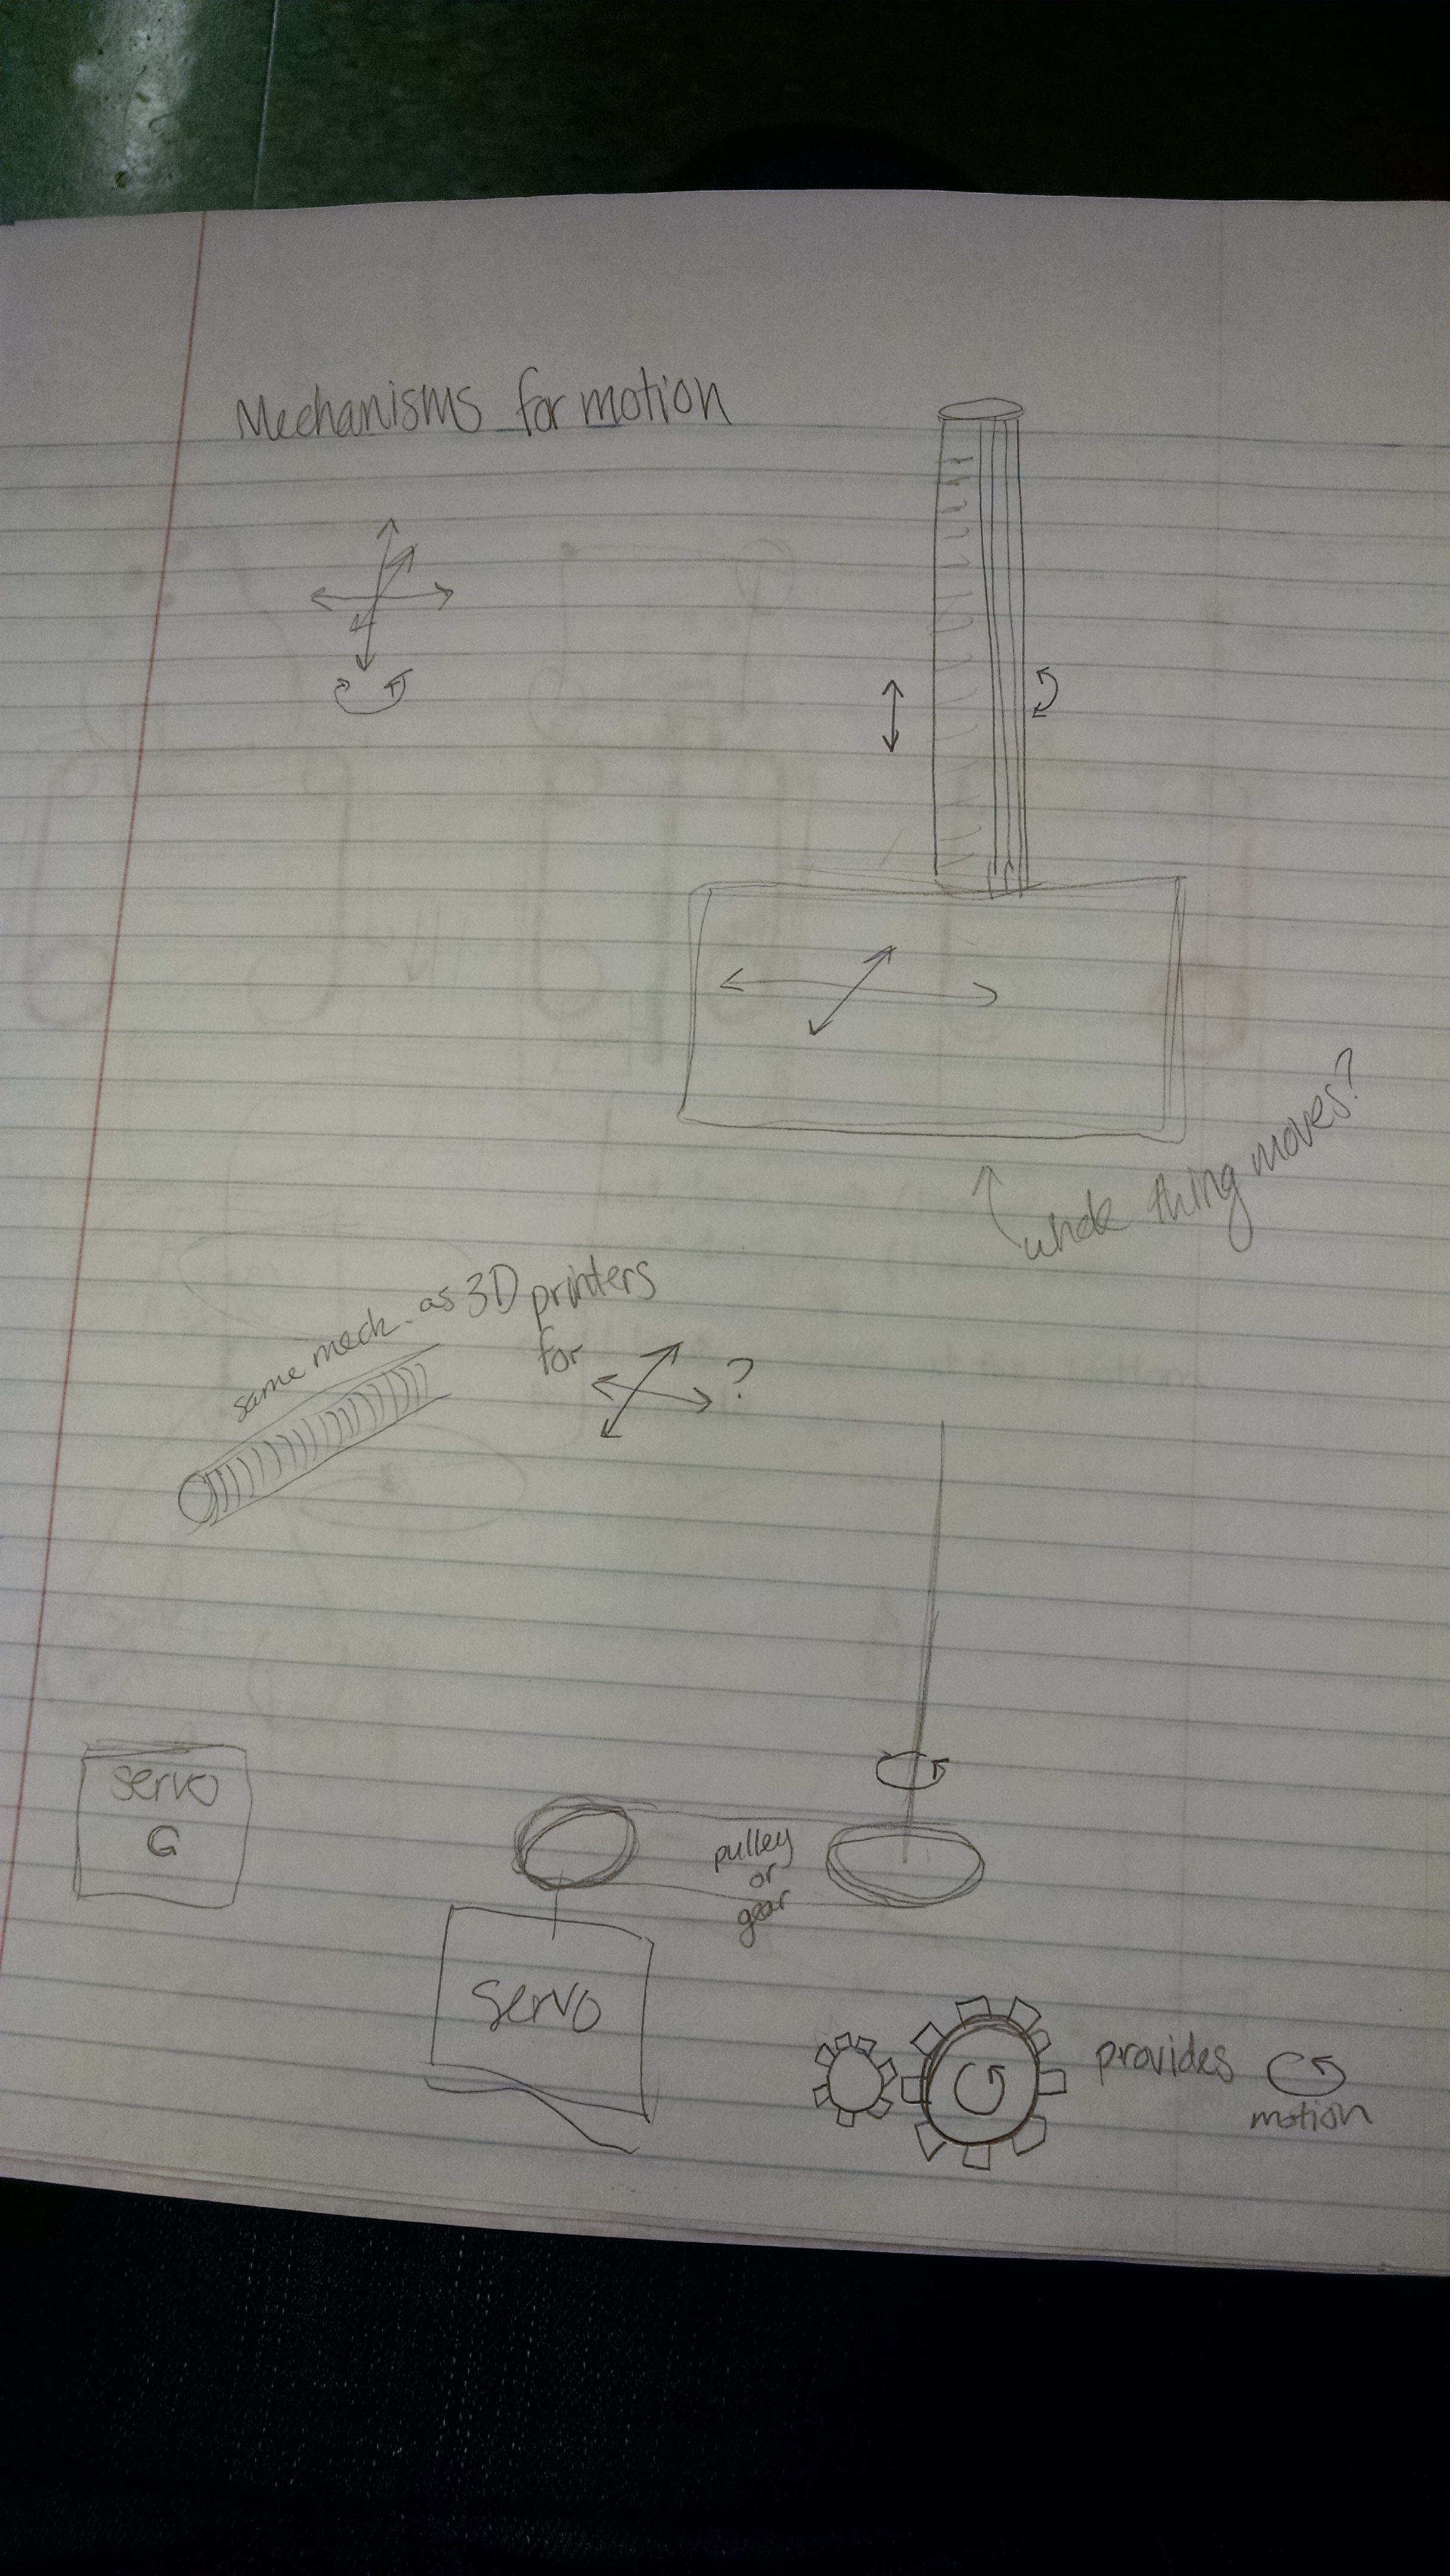 Mechanisms for motion
whole thing moves?
same mech. as 3D printers
for ?
servo
G
pulley
or
gear
servo
provides
motion